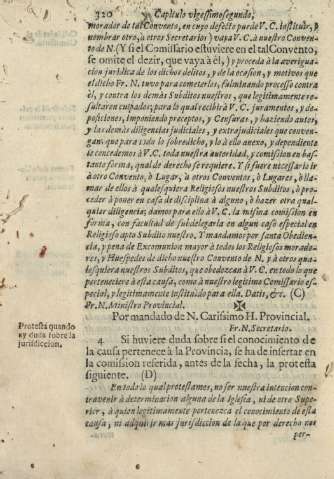 320 Capitulo vigessimosegundo,
morador de tal Convento, en cuyo defecto pueda V.C. instituir, y
nombrar otro, u otros Secretarios) vaya V.C. à nuestro Conven-
to de N. (Y si el Comissario estuviere en el tal Convento,
se omite el dezir, que vaya à èl,) y proceda à la averigua-
cion juridica de los dichos delitos, y de la ocasion, y motivos que
el dicho Fr. N. tuvo para cometerlos, fulminando processo contra
èl, y contra los demàs Subditos nuestros, que legitimamente re-
sultaren culpados; para lo qual recibirà V.C. juramentos, y de-
posiciones, imponiendo preceptos, y Censuras, y haziendo autos,
y las demàs diligencias judiciales, y extrajudiciales que conven-
gan: que para todo lo sobredicho, y lo à ello anexo, y dependiente
le concedemos à V.C. toda nuestra autoridad, y comission en bas-
tante forma, qual de derecho se requiere. Y si fuere necessario ir
à otro Convento, ò Lugar, ù otros Conventos, ò Lugares, ò lla-
mar de ellos à qualesquiera Religiosos nuestros Subditos, ò pro-
ceder à poner en casa de disciplina à alguno, ò hazer otra qual-
quier diligencia; damos para ello à V.C. la misma comission en
forma, con facultad de subdelegarla en algun caso especial en
Religioso apto Subdito nuestro. Y mandamos por santa Obedien-
cia, y pena de Excomunion mayor à todos los Religiosos morado-
res, y Huespedes de dicho nuestro Convento de N. y à otros qua-
lesquiera nuestros Subditos, que obedezcan à V.C. en todo lo que
perteneciere à esta causa, como à nuestro legitimo Comissario es-
pecial, y legitimamente instituido para ella. Datis, &c. (C)
Fr. N. Ministro Provincial.
Por mandado de N. Carissimo H. Provincial.
Fr. N. Secretario.
Protesta quando
ay duda sobre la
jurisdiccion.
4. Si huviere duda sobre si el conocimiento de
la causa pertenece à la Provincia, se ha de insertar en
la comission referida, antes de la fecha, la protesta
siguiente. (D)
En todo lo qual protestamos, no ser nuestra intencion con-
travenir à determinacion alguna de la Iglesia, ni de otro Supe-
rior, à quien legitimamente pertenezca el conocimiento de esta
causa, ni adquirir mas jurisdiccion de la que por derecho nos
per-